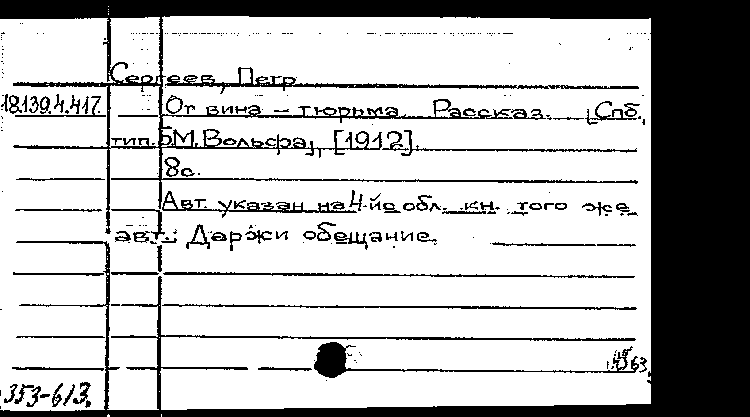 Сергеев, Петр
18.139.4.417. От вина – тюрьма. Рассказ. [Спб.,
тип. М. Вольфа], [1912].
8с.
Авт. указан на 4-йс обл. кн. того же
авт.: Держи обещание.
353-613.